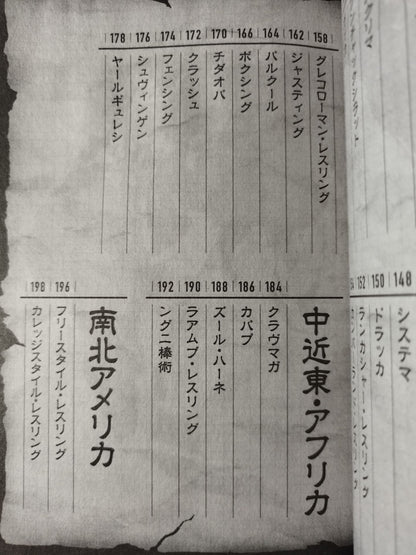 システマ 148
ドラッカ 150
ランカシャー・レスリング 152
グレコローマン・レスリング 158
ジャスティング 162
パルクール 164
ボクシング 166
チダオバ 170
クラッシュ 172
フェンシング 174
シュヴィンゲン 176
ヤールギュレシ 178
中近東・アフリカ
クラヴマガ 184
カバブ 186
ズール・ハーネ 188
ラアムブ・レスリング 190
ングニ棒術 192
南北アメリカ
フリースタイル・レスリング 196
カレッジスタイル・レスリング 198